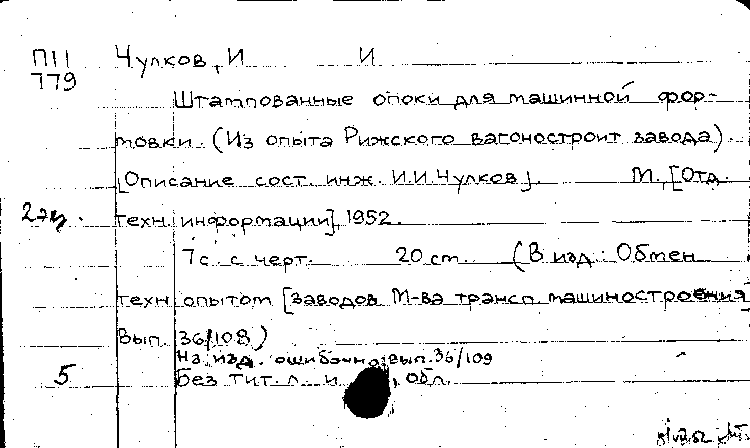 П11 Чулков, И И
779
Штампованные опоки для машинной фор-
мовки. (Из опыта Рижского вагоностроит завода).
[Описание сост. инж. И.И.Чулков]. М., [Отд.
2 экз. техн. информации], 1952.
7 с. с черт. 20 ст. (В изд.: Обмен
техн. опытом [заводов М-ва трансп. машиностроения]
Вып. 36/108)
На изд. ошибочно: вып. 36/109
5 Без тит. л. и , обл.